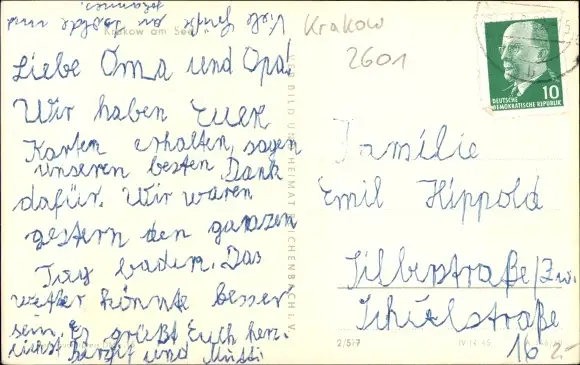 Viele Grüße an Isolde und
Krakow am See
Liebe Oma und Opa!
Wir haben Euer
Karten erhalten, sagen
unseren besten Dank
dafür. Wir waren
gestern den ganzen
Tag baden. Das
wetter könnte besser
sein. Es grüßt Euch herz-
lichst und Mutti
BILD UND HEIMAT REICHENBACH I. V.
Krakow
2601
10
DEUTSCHE
DEMOKRATISCHE REPUBLIK
Familie
Emil Hippold
Silberstraße/Zw.
Schulstraße
16
2-
2/597